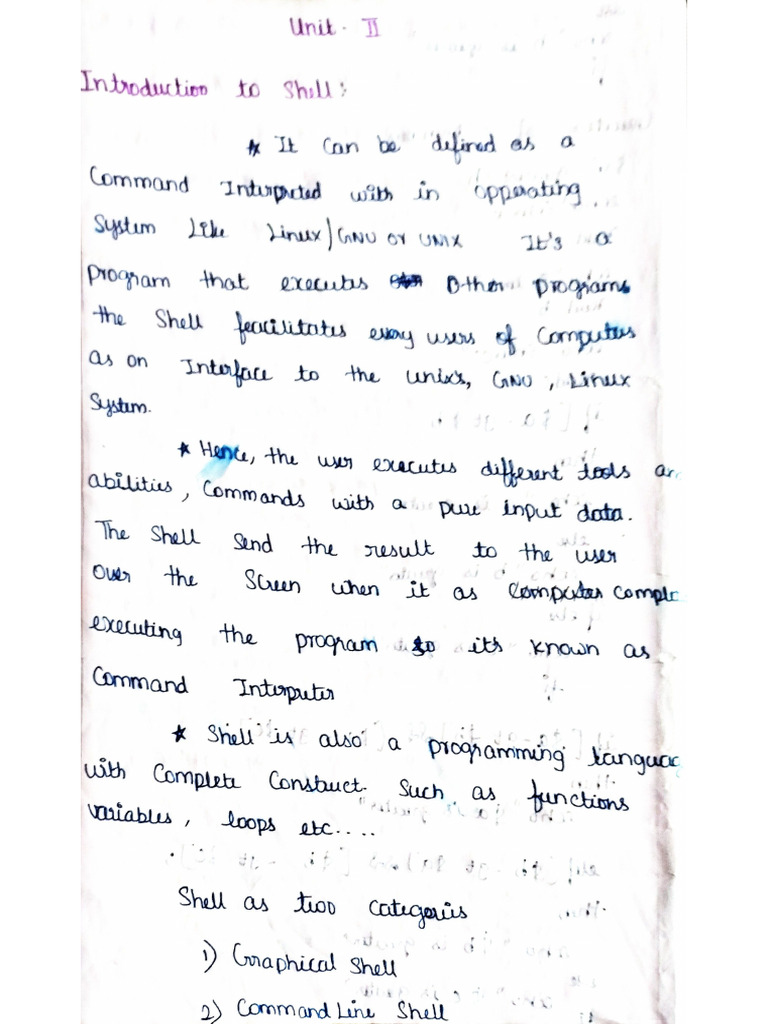 Unit - II
Introduction to Shell:
* It can be defined as a
Command Interpreted with in opperating
System Like Linux/GNU or UNIX It's a
program that executes Other programs
the Shell feacilitates every users of Computers
as on Interface to the unix's, GNU, Linux
System.
* Hence, the user executes different tools an
abilities, Commands with a pure input data.
The Shell Send the result to the user
Over the Screen when it as comple
executing the program so its known as
Command Interputer
* Shell is also a programming languag
with Complete Construct. Such as functions
variables, loops etc....
Shell as two categories
1) Graphical Shell
2) Command Line Shell